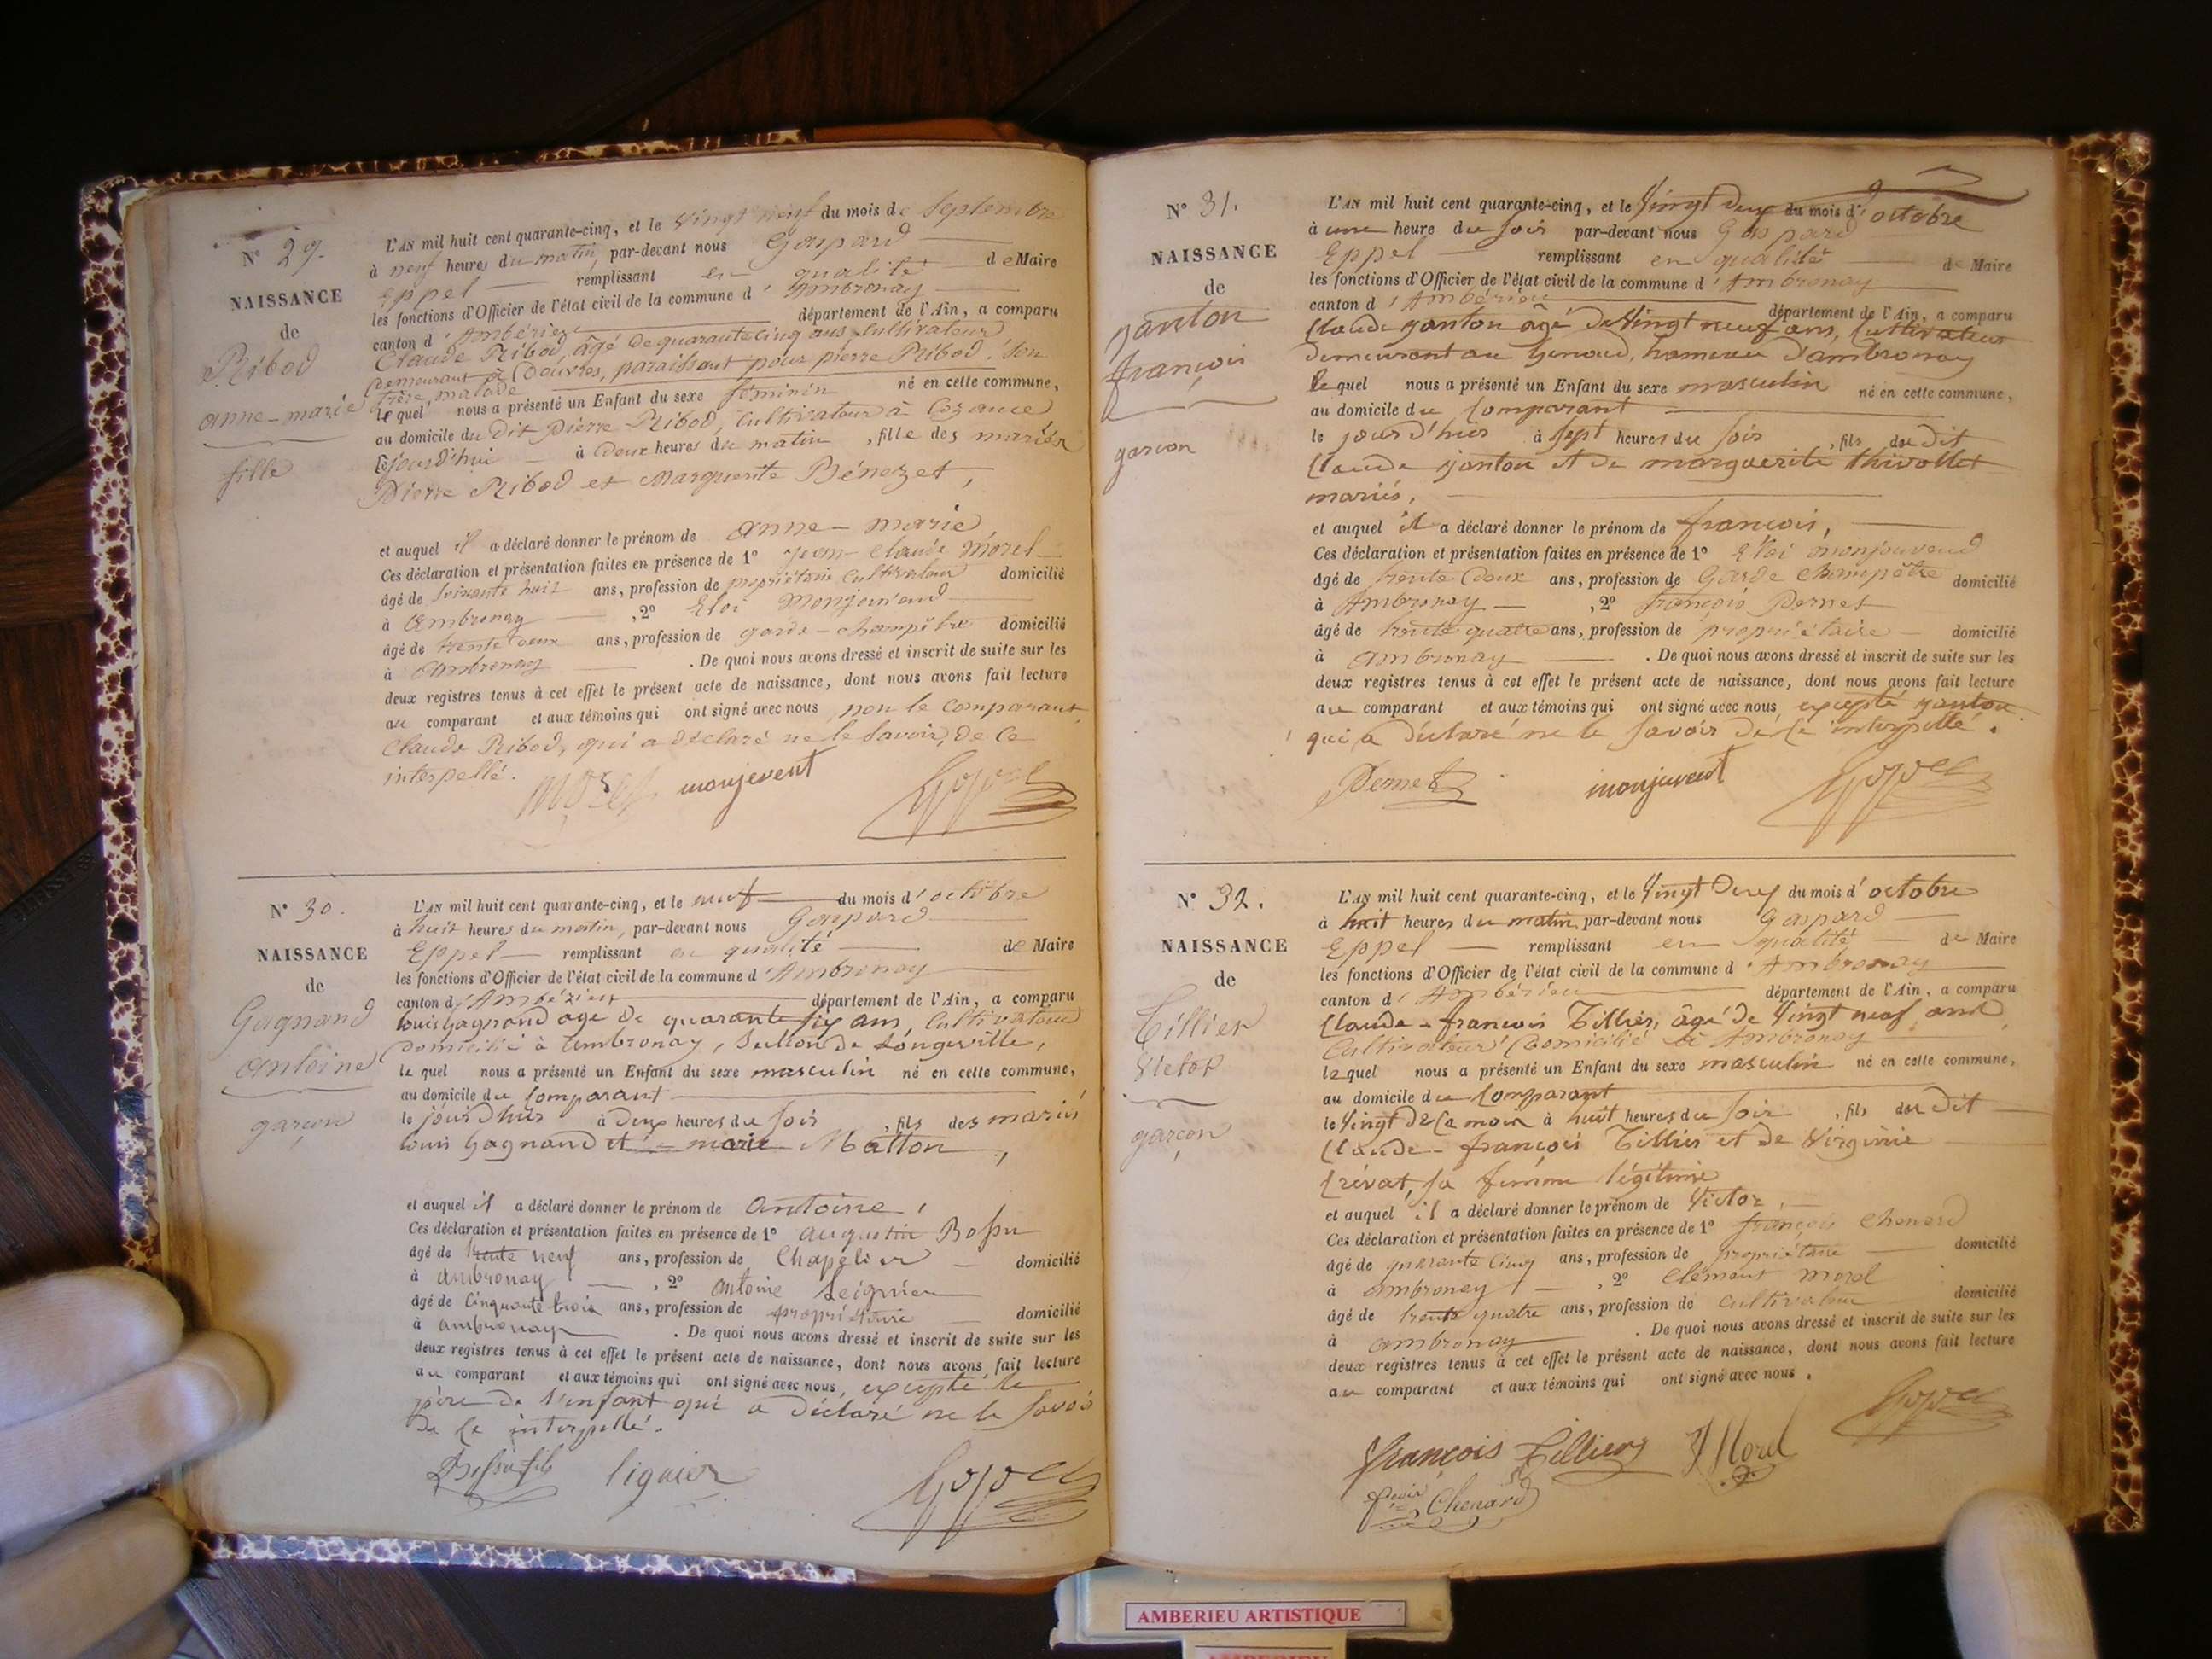 N° 29.
NAISSANCE
de
Ribod
anne-marie
fille
L'AN mil huit cent quarante-cinq, et le vingt neuf du mois de Septembre
à neuf heures du matin, par-devant nous Gaspard
Eppel remplissant en qualité de Maire
les fonctions d'Officier de l'état civil de la commune d'Ambronay
canton d'Ambérieu département de l'Ain, a comparu
Claude Ribod, âgé de quarante cinq ans, Cultivateur
demeurant à Douvres, paraissant pour pierre Ribod, son
frère, malade
lequel nous a présenté un Enfant du sexe féminin né en cette commune,
au domicile du dit Pierre Ribod, Cultivateur à
le jourd'hui à deux heures du matin, fille des mariés
Pierre Ribod et Marguerite Bénezet,
et auquel il a déclaré donner le prénom de anne-marie,
Ces déclaration et présentation faites en présence de 1° jean-Claude Morel
âgé de soixante huit ans, profession de propriétaire Cultivateur domicilié
à Ambronay, 2° Eloi Monjouvend
âgé de trente deux ans, profession de garde-champêtre domicilié
à Ambronay. De quoi nous avons dressé et inscrit de suite sur les
deux registres tenus à cet effet le présent acte de naissance, dont nous avons fait lecture
au comparant et aux témoins qui ont signé avec nous, non le comparant,
Claude Ribod, qui a déclaré ne le savoir, de ce
interpellé.
Morel monjevent
N° 30.
NAISSANCE
de
Gagnand
Antoine
garçon
L'AN mil huit cent quarante-cinq, et le neuf du mois d'octobre
à huit heures du matin, par-devant nous Gaspard
Eppel remplissant en qualité de Maire
les fonctions d'Officier de l'état civil de la commune d'Ambronay
canton d'Ambérieu département de l'Ain, a comparu
louis Gagnand âgé de quarante six ans, Cultivateur
domicilié à Ambronay, Section de Longeville,
lequel nous a présenté un Enfant du sexe masculin né en cette commune,
au domicile du Comparant
le jourd'hui à deux heures du soir, fils des mariés
louis Gagnand et marie Matton,
et auquel il a déclaré donner le prénom de antoine,
Ces déclaration et présentation faites en présence de 1° augustin Bossu
âgé de trente neuf ans, profession de Chapelier domicilié
à ambronay, 2° antoine Leignier
âgé de Cinquante trois ans, profession de propriétaire domicilié
à ambronay. De quoi nous avons dressé et inscrit de suite sur les
deux registres tenus à cet effet le présent acte de naissance, dont nous avons fait lecture
au comparant et aux témoins qui ont signé avec nous, excepté le
père de l'enfant qui a déclaré ne le savoir
de ce interpellé.
Bossu fils liguier
N° 31.
NAISSANCE
de
janton
françois
garçon
L'AN mil huit cent quarante-cinq, et le Vingt deux du mois d'octobre
à une heure du soir par-devant nous Gaspard
Eppel remplissant en qualité de Maire
les fonctions d'Officier de l'état civil de la commune d'Ambronay
canton d'Ambérieu département de l'Ain, a comparu
Claude janton âgé de Vingt neuf ans, Cultivateur
demeurant au Genoud, hameau d'ambronay
lequel nous a présenté un Enfant du sexe masculin né en cette commune,
au domicile du Comparant
le jourd'hui à sept heures du soir, fils du dit
Claude janton et de marguerite thivollet
mariés,
et auquel il a déclaré donner le prénom de françois,
Ces déclaration et présentation faites en présence de 1° Eloi monjouvend
âgé de trente deux ans, profession de Garde Champêtre domicilié
à Ambronay, 2° françois Pernet
âgé de trente quatre ans, profession de propriétaire domicilié
à ambronay. De quoi nous avons dressé et inscrit de suite sur les
deux registres tenus à cet effet le présent acte de naissance, dont nous avons fait lecture
au comparant et aux témoins qui ont signé avec nous excepté janton
qui a déclaré ne le savoir de ce interpellé.
Pernet monjuvent
N° 32.
NAISSANCE
de
Tillier
Victor
garçon
L'AN mil huit cent quarante-cinq, et le Vingt deux du mois d'octobre
à huit heures du matin, par-devant nous Gaspard
Eppel remplissant en qualité de Maire
les fonctions d'Officier de l'état civil de la commune d'Ambronay
canton d'Ambérieu département de l'Ain, a comparu
Claude-françois Tillier, âgé de Vingt neuf ans,
Cultivateur domicilié à Ambronay
lequel nous a présenté un Enfant du sexe masculin né en cette commune,
au domicile du Comparant
le Vingt de ce mois à huit heures du soir, fils du dit
Claude-françois Tillier et de Virginie
Crévat, sa femme légitime
et auquel il a déclaré donner le prénom de Victor,
Ces déclaration et présentation faites en présence de 1° françois Chenard
âgé de quarante Cinq ans, profession de propriétaire domicilié
à ambronay, 2° Clément morel
âgé de trente quatre ans, profession de Cultivateur domicilié
à ambronay. De quoi nous avons dressé et inscrit de suite sur les
deux registres tenus à cet effet le présent acte de naissance, dont nous avons fait lecture
au comparant et aux témoins qui ont signé avec nous.
françois Tillier Morel
Chenard
AMBERIEU ARTISTIQUE